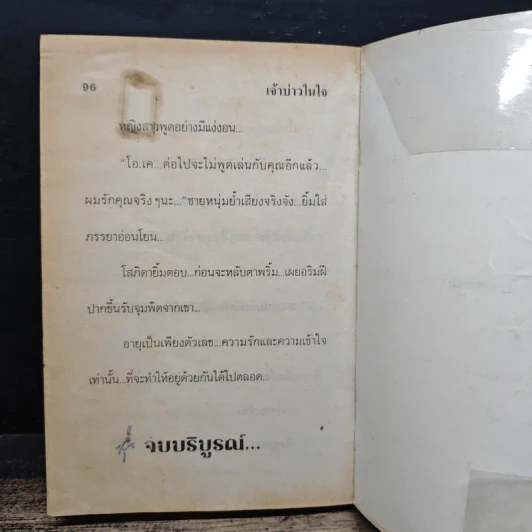 96 เจ้าบ่าวในใจ
หญิงสาวพูดอย่างมีแง่งอน...
"โอ.เค...ต่อไปจะไม่พูดเล่นกับคุณอีกแล้ว...
ผมรักคุณจริง ๆนะ..."ชายหนุ่มย้ำเสียงจริงจัง...ยิ้มใส่
ภรรยาอ่อนโยน...
โสภิตายิ้มตอบ...ก่อนจะหลับตาพริ้ม...เผยอริมฝี
ปากขึ้นรับจุมพิตจากเขา...
อายุเป็นเพียงตัวเลข...ความรักและความเข้าใจ
เท่านั้น...ที่จะทำให้อยู่ด้วยกันได้ไปตลอด...
จบบริบูรณ์...